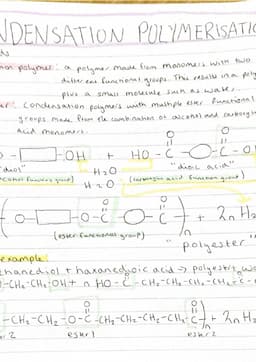 NDENSATION POLYMERISATIO
ds
on polymer: a polymer made from monomers with two
different functional groups. This results in a poly
plus a small molecule such as water.
er: condensation polymers with multiple ester functional
groups made from the combination of alcohol and carboxyl
acid monomers.
O O
OH + HO - C C - O
"diol" H₂O "dioic acid"
(alcohol functional group) H₂O (carboxylic acid function group)
O O
O O - C O - C + 2n H₂
(ester functional group) n
"polyester"
example
thanediol + hexanedioic acid → polyester, wa
- CH₂ - CH₂ - OH + n HO - C - CH₂ - CH₂ - CH₂ - CH₂ - C -
O O
- CH₂ - CH₂ - O - C - CH₂ - CH₂ - CH₂ - CH₂ - C + 2n H₂
r 2 ester 1 n ester 2